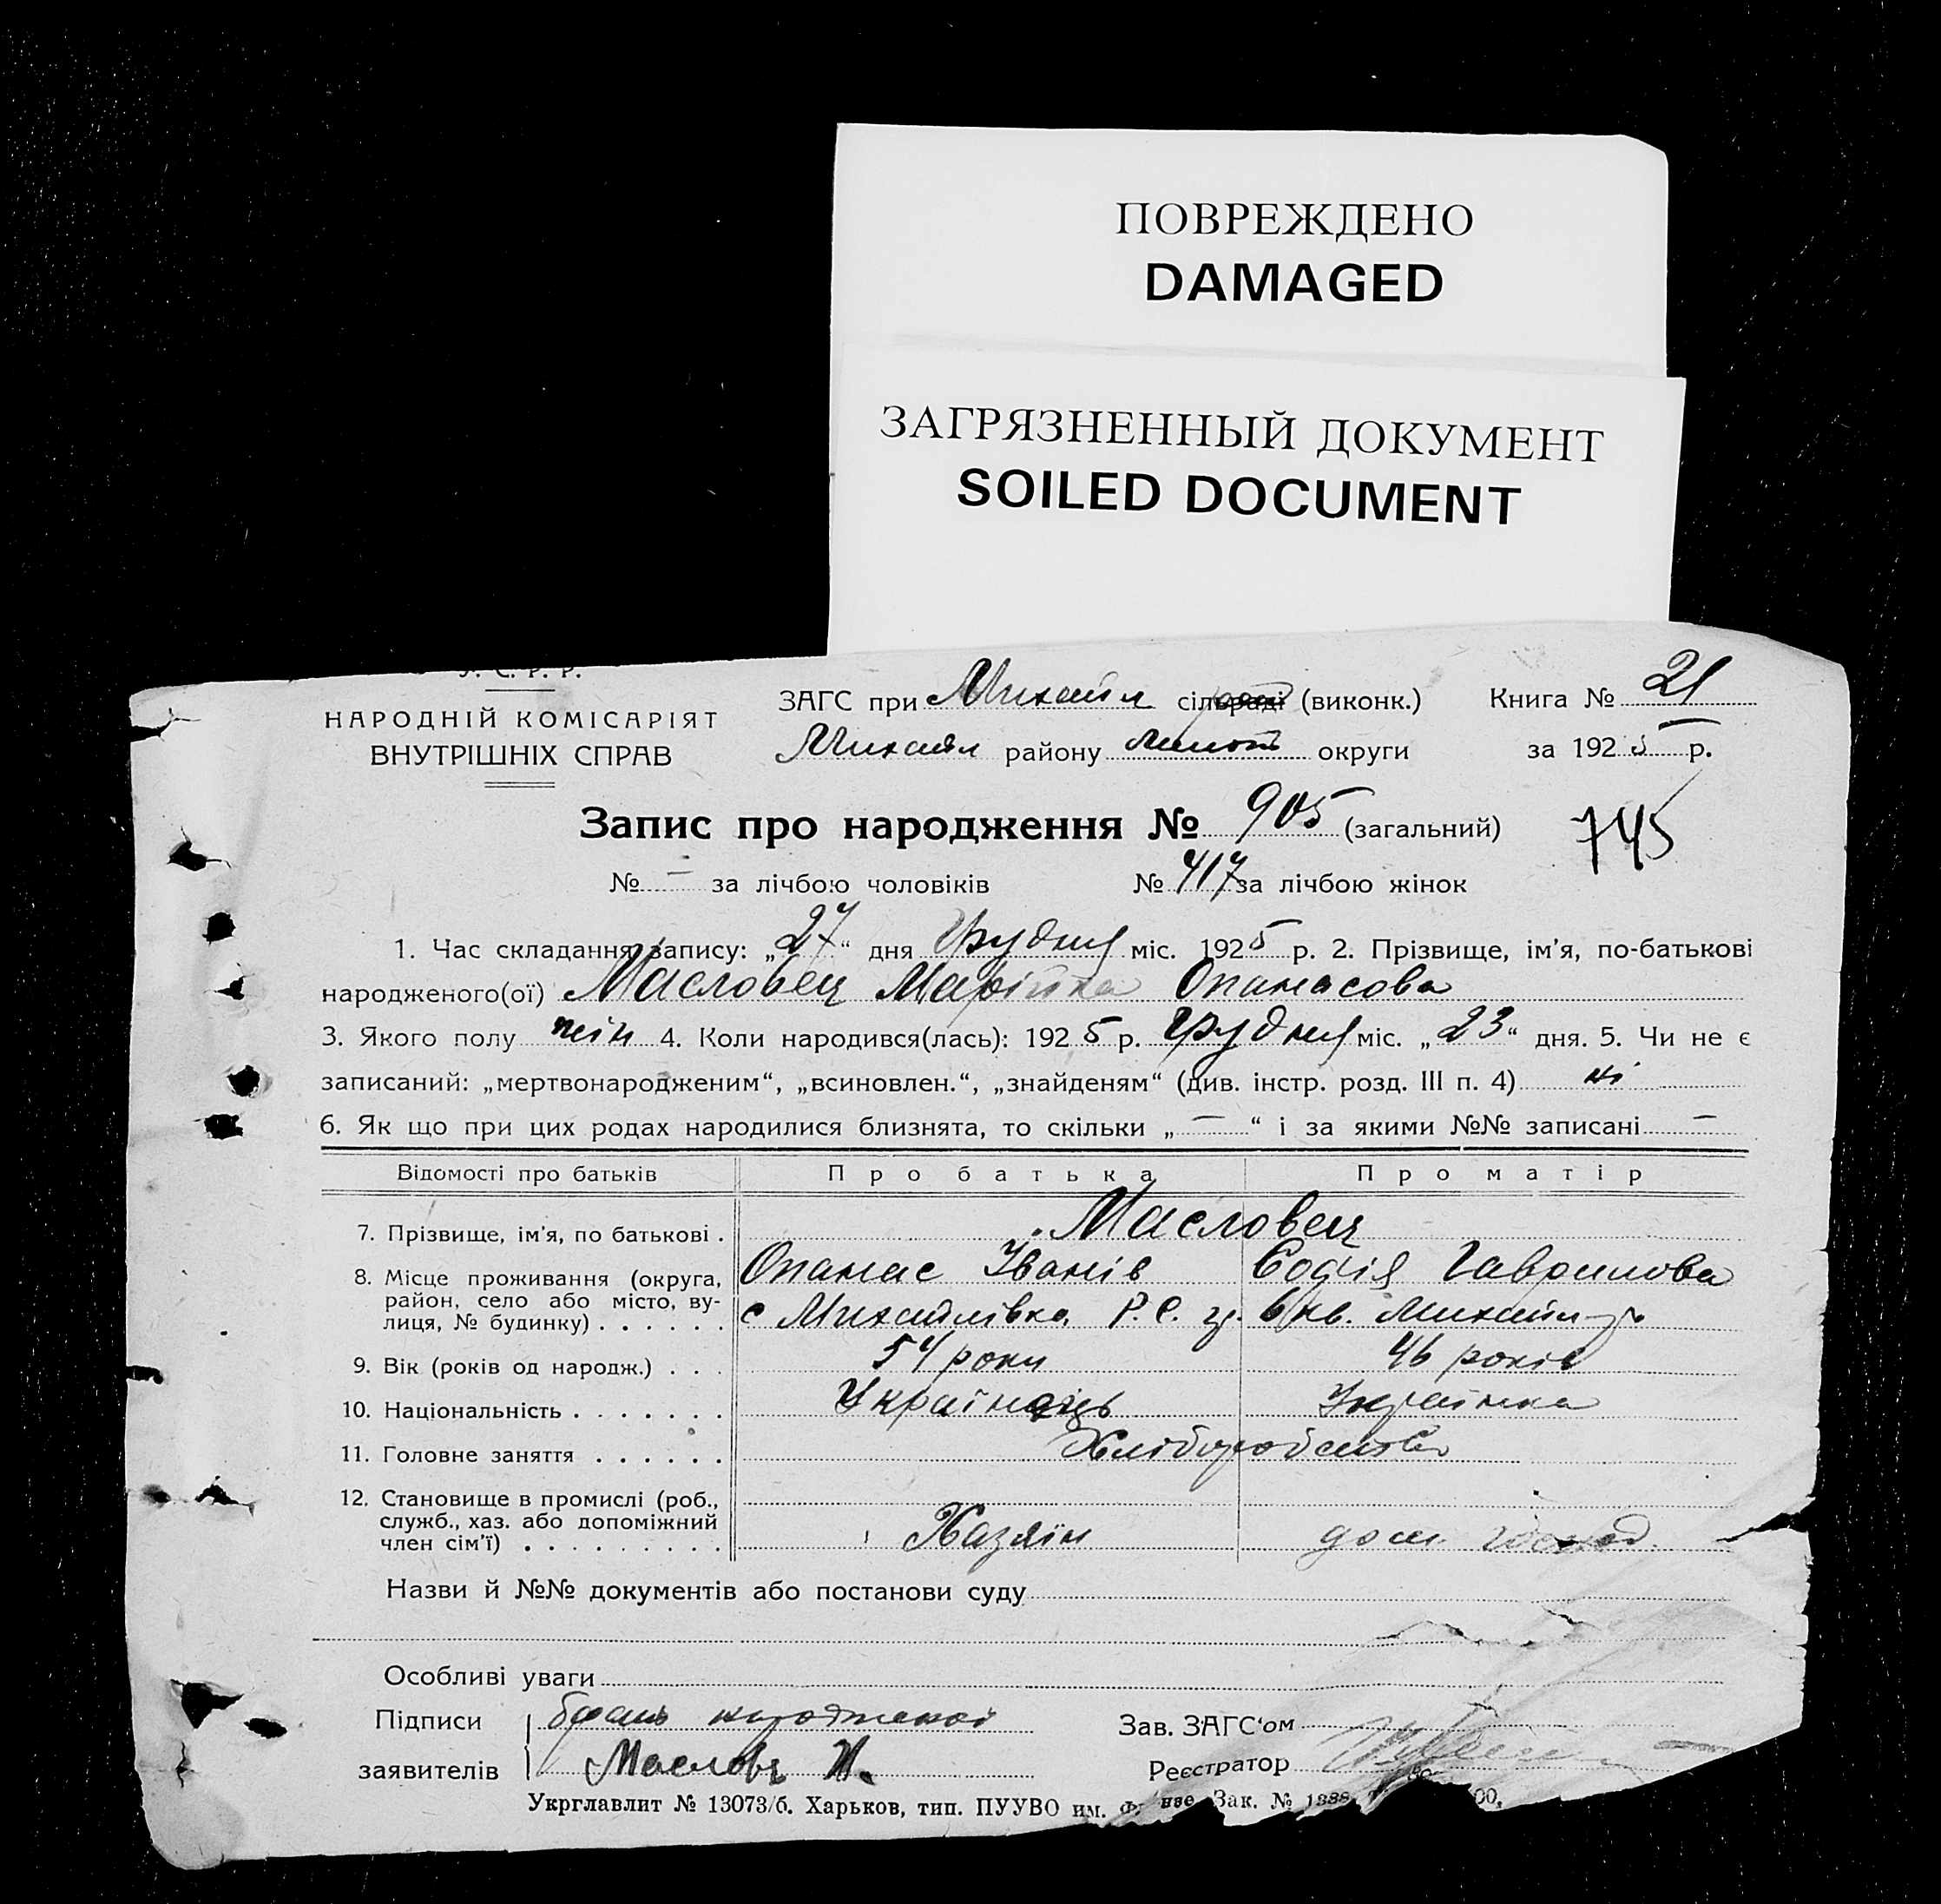 ПОВРЕЖДЕНО
DAMAGED
ЗАГРЯЗНЕННЫЙ ДОКУМЕНТ
SOILED DOCUMENT
У. С. Р. Р.
НАРОДНІЙ КОМІСАРІЯТ
ВНУТРІШНІХ СПРАВ
ЗАГС при Михайл сільраді (виконк.) Книга № 21
Михайл району округи за 1925 р.
Запис про народження № 905 (загальний)
745
№ — за лічбою чоловіків № 417 за лічбою жінок
1. Час складання запису: „27“ дня Грудня міс. 1925 р. 2. Прізвище, ім'я, по-батькові
народженого(ої) Масловец Марійка Опанасова
3. Якого полу жін 4. Коли народився(лась): 1925 р. Грудня міс. „23“ дня. 5. Чи не є
записаний: „мертвонародженим“, „всиновлен.“, „знайденям“ (див. інстр. розд. III п. 4) ні
6. Як що при цих родах народилися близнята, то скільки „—“ і за якими №№ записані —
Відомості про батьків Про батька Про матір
7. Прізвище, ім'я, по батькові . Масловец
Опанас Іванів Софія Гаврилова
8. Місце проживання (округа, район, село або місто, вулиця, № будинку) . . . . . . с Михайлівка Р.С.
9. Вік (років од народж.) . . . 54 роки 46 років
10. Національність . . . . . . . Українець Українка
11. Головне заняття . . . . . . Хліборобство
12. Становище в промислі (роб.,
служб., хаз. або допоміжний
член сім'ї) . . . . . . . . . Хазяїн дом. господ.
Назви й №№ документів або постанови суду
Особливі уваги
Підписи брат народженої Зав. ЗАГС'ом
заявителів Масловц И. Реєстратор
Укрглавлит № 13073/б. Харьков, тип. ПУУВО им. Зак. №